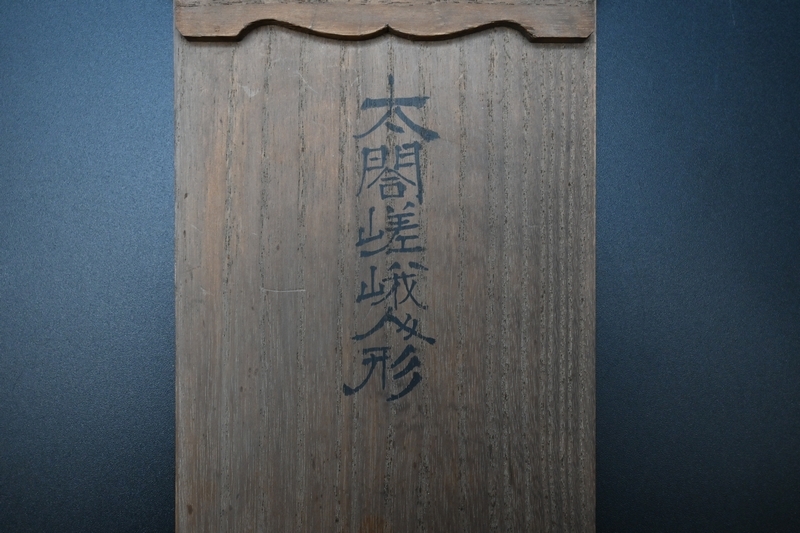 太閤嵯峨人形